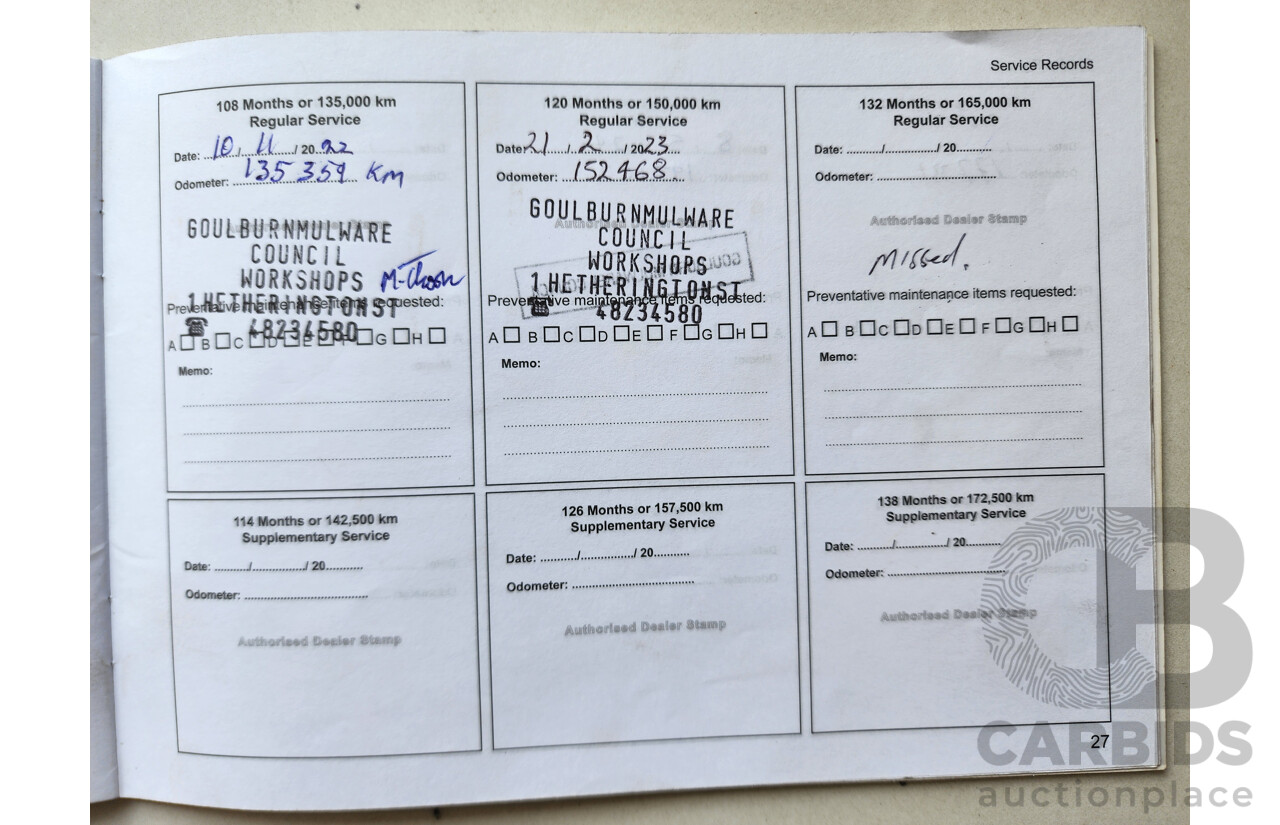 Service Records
108 Months or 135,000 km
Regular Service
Date: 10, 11 / 20 22
Odometer: 135 359 Km
GOULBURNMULWARE
COUNCIL
WORKSHOPS
1 HETHERINGTONST
☎ 48234580
Preventative maintenance items requested:
A B C D E F G H
Memo:
120 Months or 150,000 km
Regular Service
Date: 21 / 2 / 2023
Odometer: 152468
Authorised Dealer Stamp
GOULBURNMULWARE
COUNCIL
WORKSHOPS
1 HETHERINGTONST
☎ 48234580
Preventative maintenance items requested:
A B C D E F G H
Memo:
132 Months or 165,000 km
Regular Service
Date: ........../................/ 20..........
Odometer: ..................................
Authorised Dealer Stamp
Missed.
Preventative maintenance items requested:
A B C D E F G H
Memo:
114 Months or 142,500 km
Supplementary Service
Date: ........../................/ 20..........
Odometer: ..................................
Authorised Dealer Stamp
126 Months or 157,500 km
Supplementary Service
Date: ........../................/ 20..........
Odometer: ..................................
Authorised Dealer Stamp
138 Months or 172,500 km
Supplementary Service
Date: ........../................/ 20..........
Odometer: ..................................
Authorised Dealer Stamp
27
CB
CARBIDS
auctionplace